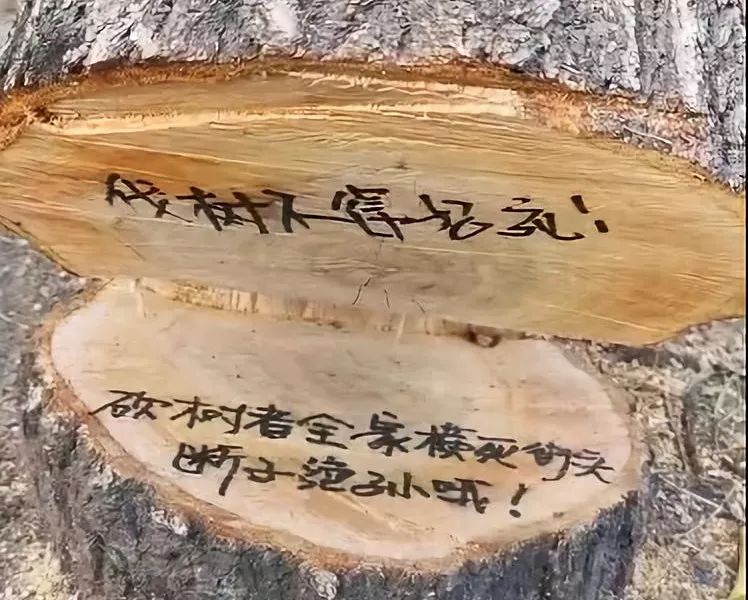 伐树不得好死!
砍树者全家横死街头
断子绝孙哦!